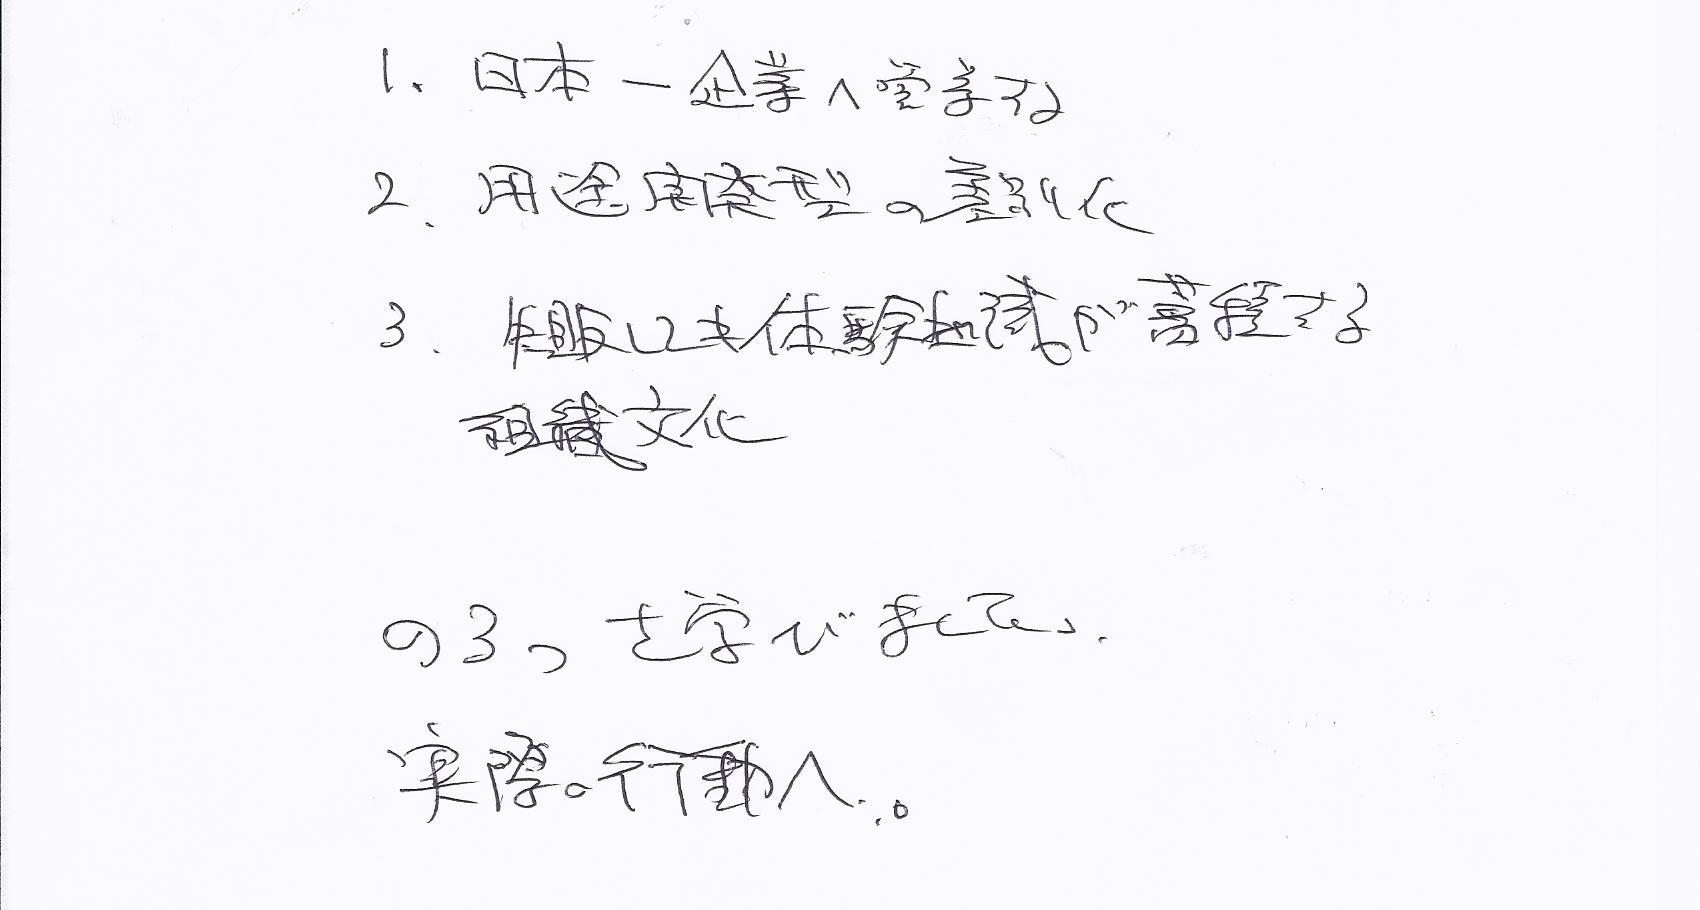 1. 日本一企業へ学する
2. 用途提案型の差別化
3. 販しても体験知識が蓄積する
組織文化
の3つを学びました.
実際の行動へ...。